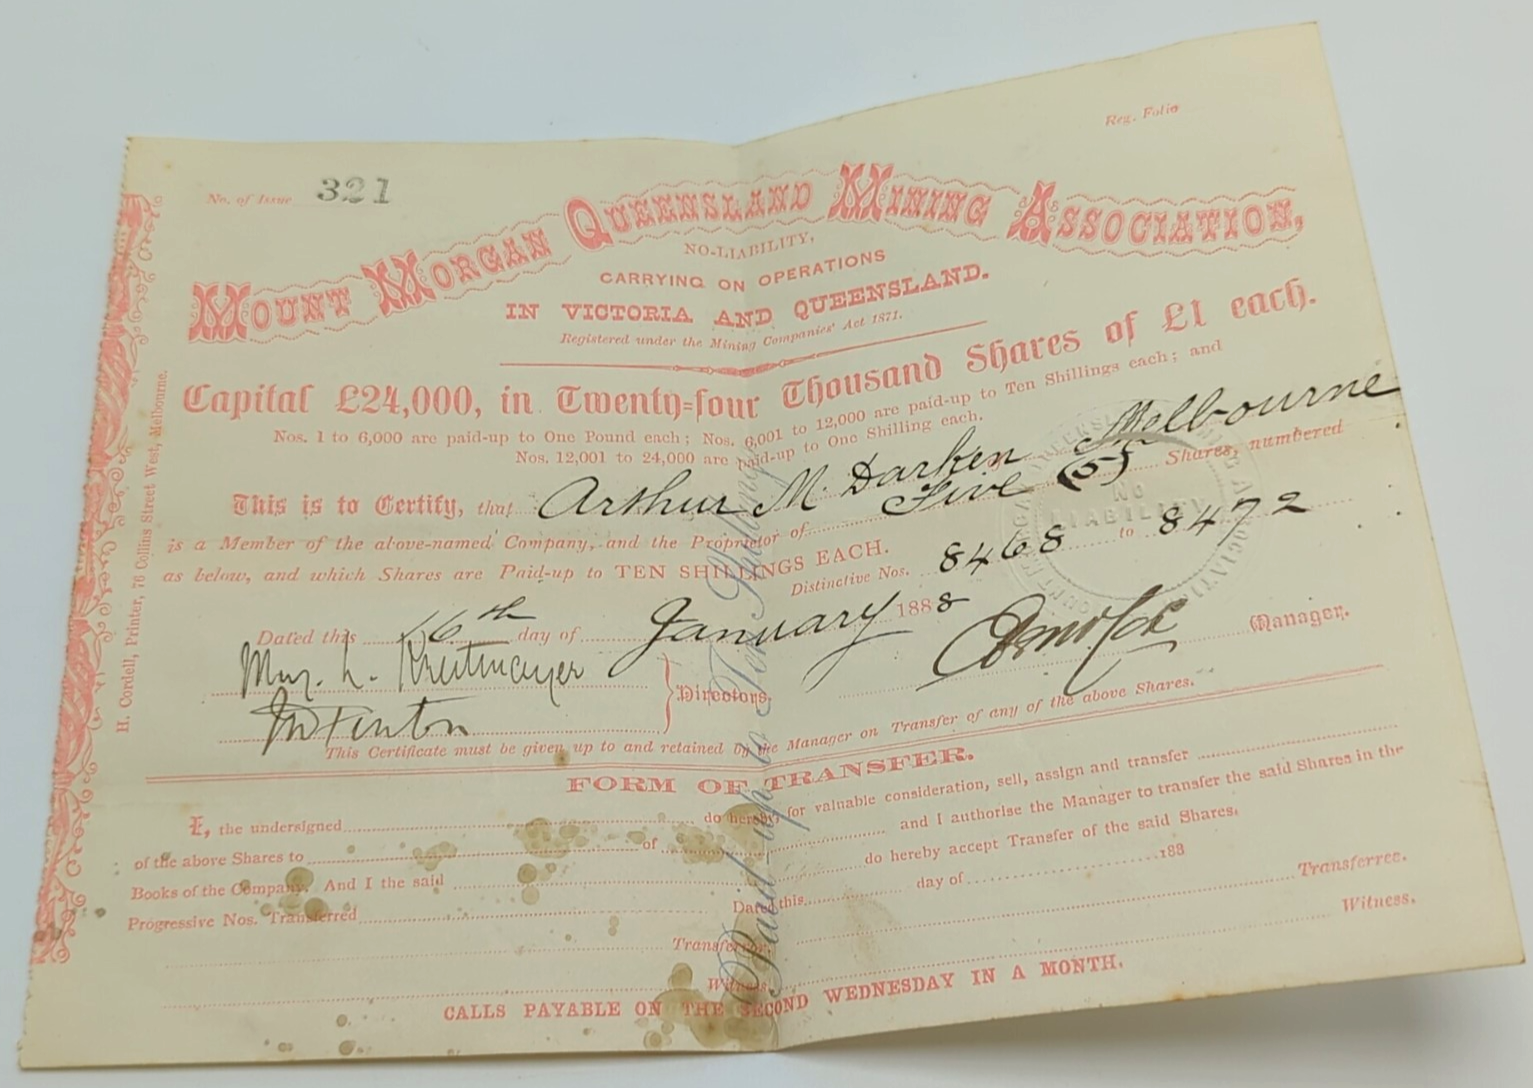 Reg. Folio
No. of Issue 321
MOUNT MORGAN QUEENSLAND MINING ASSOCIATION,
NO-LIABILITY,
CARRYING ON OPERATIONS
IN VICTORIA AND QUEENSLAND.
Registered under the Mining Companies' Act 1871.
Capital £24,000, in Twenty-four Thousand Shares of £1 each.
Nos. 1 to 6,000 are paid-up to One Pound each; Nos. 6,001 to 12,000 are paid-up to Ten Shillings each; and
Nos. 12,001 to 24,000 are paid-up to One Shilling each.
This is to Certify, that Arthur M. Darken Melbourne
is a Member of the above-named Company, and the Proprietor of Five (5) Shares, numbered
as below, and which Shares are Paid-up to TEN SHILLINGS EACH.
Distinctive Nos. 8468 to 8472
Dated this 16th day of January 1888
Directors.
Manager.
Fenton
This Certificate must be given up to and retained by the Manager on Transfer of any of the above Shares.
FORM OF TRANSFER.
I, the undersigned do hereby for valuable consideration, sell, assign and transfer
of the above Shares to of and I authorise the Manager to transfer the said Shares in the
Books of the Company. And I the said do hereby accept Transfer of the said Shares.
Progressive Nos. Transferred Dated this day of 188
Transferror. Transferree.
Witness. Witness.
CALLS PAYABLE ON THE SECOND WEDNESDAY IN A MONTH.
H. Cordell, Printer, 76 Collins Street West, Melbourne.
Paid up to Ten Shillings
NO
LIABILITY